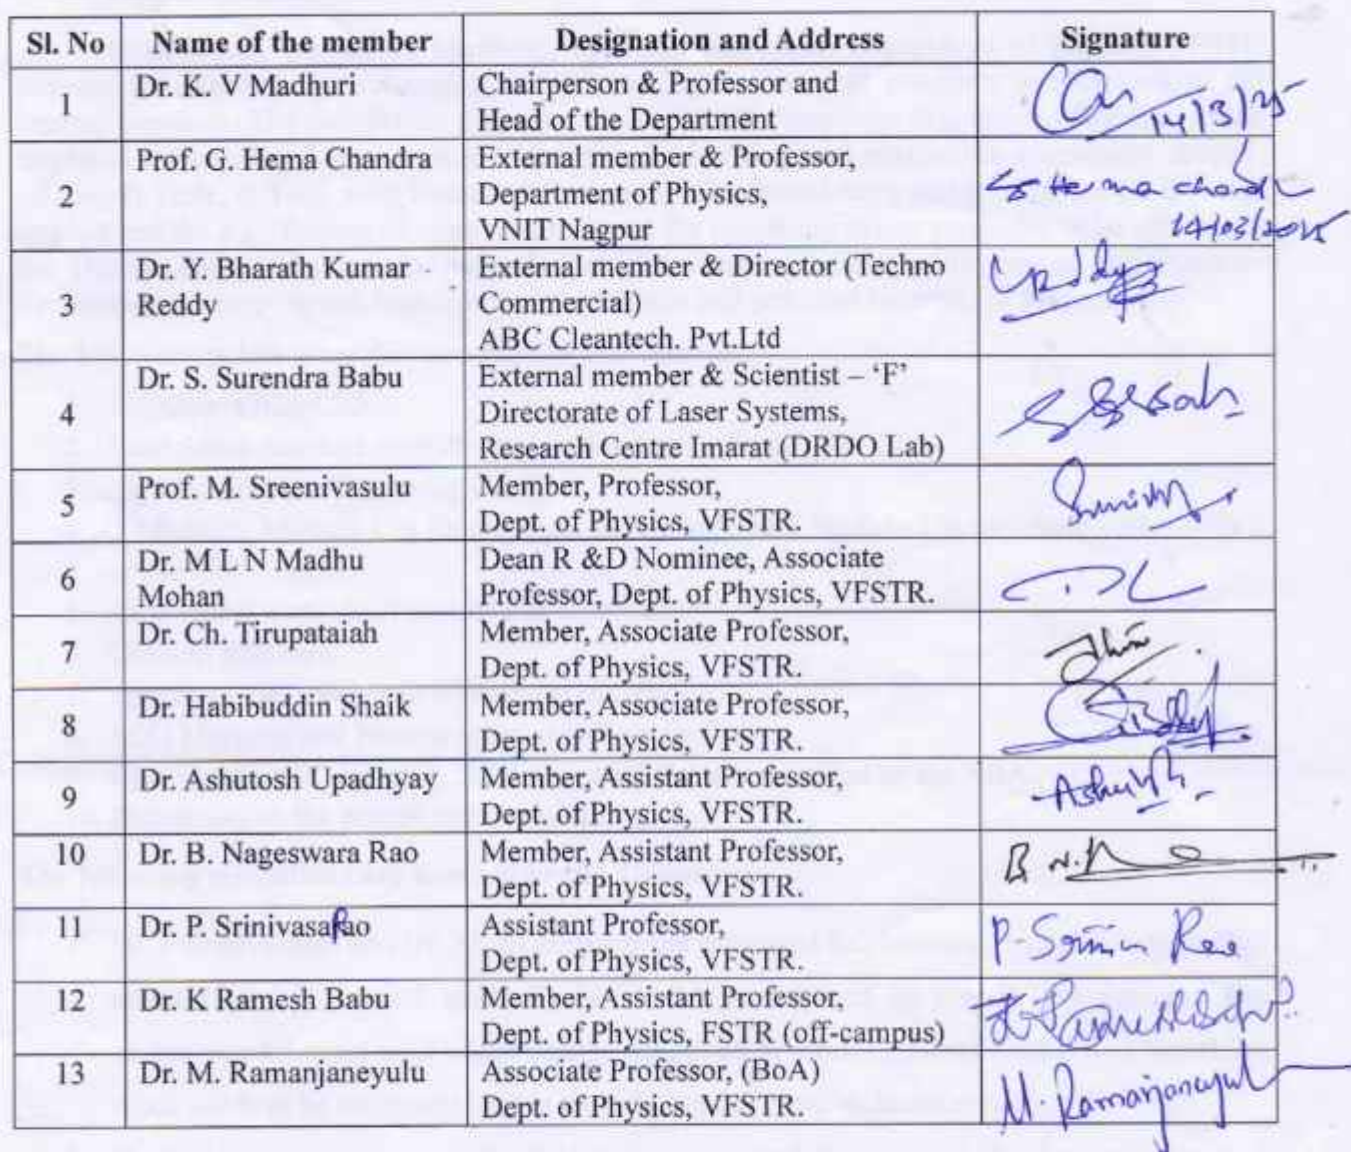 Sl. No Name of the member Designation and Address Signature
1 Dr. K. V Madhuri Chairperson & Professor and
Head of the Department
14/3/25
2 Prof. G. Hema Chandra External member & Professor,
Department of Physics,
VNIT Nagpur
G Hema chandra
14/03/2025
3 Dr. Y. Bharath Kumar
Reddy
External member & Director (Techno
Commercial)
ABC Cleantech. Pvt.Ltd
4 Dr. S. Surendra Babu External member & Scientist – ‘F’
Directorate of Laser Systems,
Research Centre Imarat (DRDO Lab)
5 Prof. M. Sreenivasulu Member, Professor,
Dept. of Physics, VFSTR.
6 Dr. M L N Madhu
Mohan
Dean R &D Nominee, Associate
Professor, Dept. of Physics, VFSTR.
7 Dr. Ch. Tirupataiah Member, Associate Professor,
Dept. of Physics, VFSTR.
8 Dr. Habibuddin Shaik Member, Associate Professor,
Dept. of Physics, VFSTR.
9 Dr. Ashutosh Upadhyay Member, Assistant Professor,
Dept. of Physics, VFSTR.
Ashutosh
10 Dr. B. Nageswara Rao Member, Assistant Professor,
Dept. of Physics, VFSTR.
B. N.
11 Dr. P. SrinivasaRao Assistant Professor,
Dept. of Physics, VFSTR.
P. Srinivasa Rao
12 Dr. K Ramesh Babu Member, Assistant Professor,
Dept. of Physics, FSTR (off-campus)
K Ramesh Babu
13 Dr. M. Ramanjaneyulu Associate Professor, (BoA)
Dept. of Physics, VFSTR.
M. Ramanjaneyulu